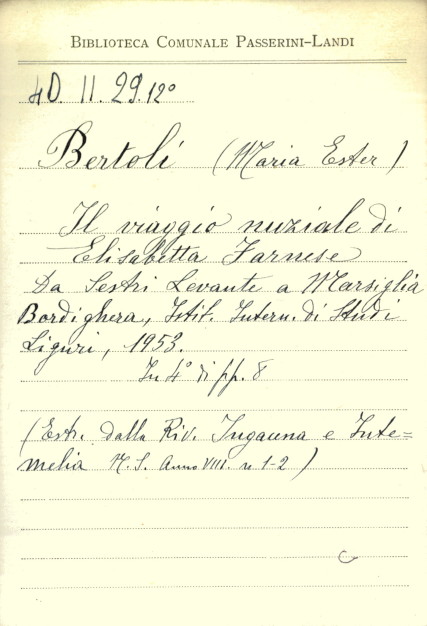 BIBLIOTECA COMUNALE PASSERINI-LANDI
4D. II. 29.12°
Bertoli (Maria Ester)
Il viaggio nuziale di
Elisabetta Farnese
Da Sestri Levante a Marsiglia
Bordighera, Istit. Intern. di Studi
Liguri, 1953.
In 4° di pp. 8
(Estr. dalla Riv. Ingauna e Inte=
melia N.S. Anno VIII. n 1-2)